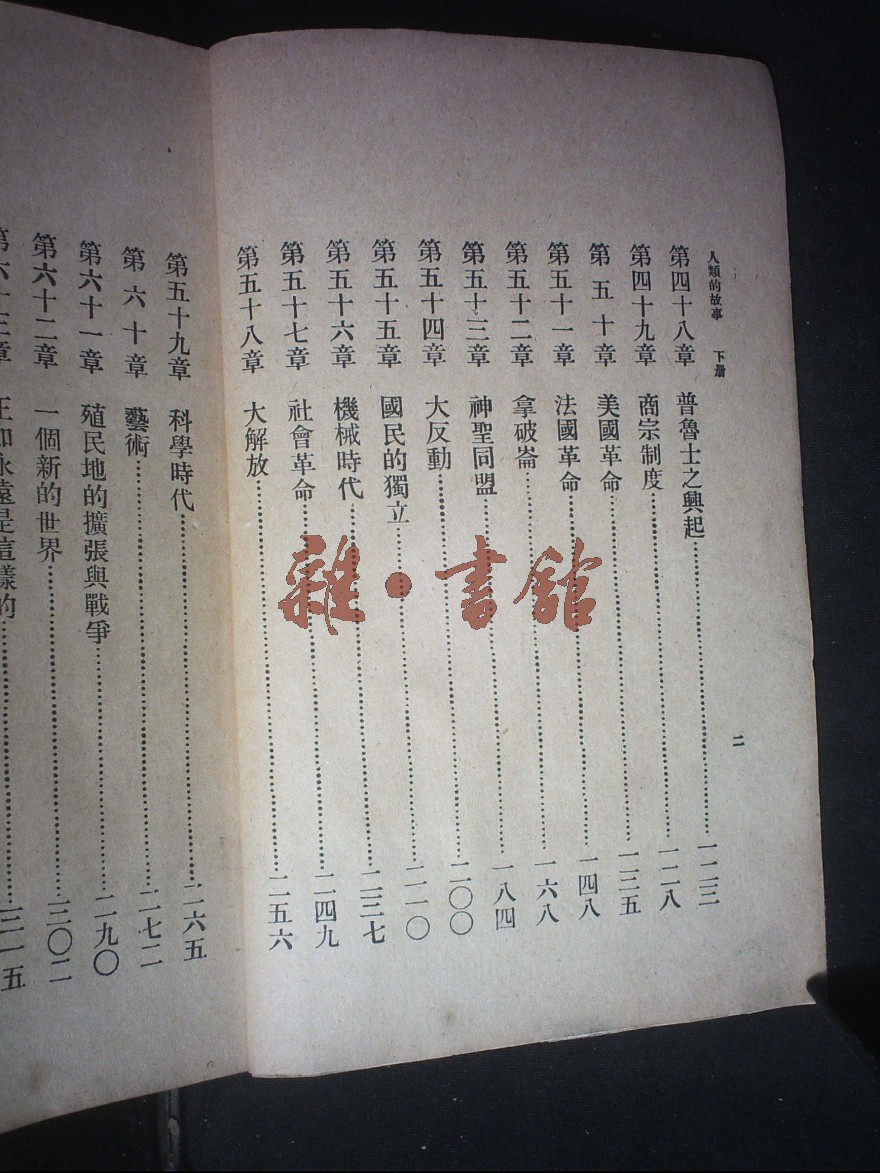 人類的故事　下册
第四十八章　普魯士之興起……………一二三
第四十九章　商宗制度……………一二八
第五十章　美國革命……………一三五
第五十一章　法國革命……………一四八
第五十二章　拿破崙……………一六八
第五十三章　神聖同盟……………一八四
第五十四章　大反動……………二〇〇
第五十五章　國民的獨立……………二一〇
第五十六章　機械時代……………二三七
第五十七章　社會革命……………二四九
第五十八章　大解放……………二五六
二
第五十九章　科學時代……………二六五
第六十章　藝術……………二七二
第六十一章　殖民地的擴張與戰爭……………二九〇
第六十二章　一個新的世界……………三〇二
第六十三章　正如永遠是這樣的……………三一五
雜·書館